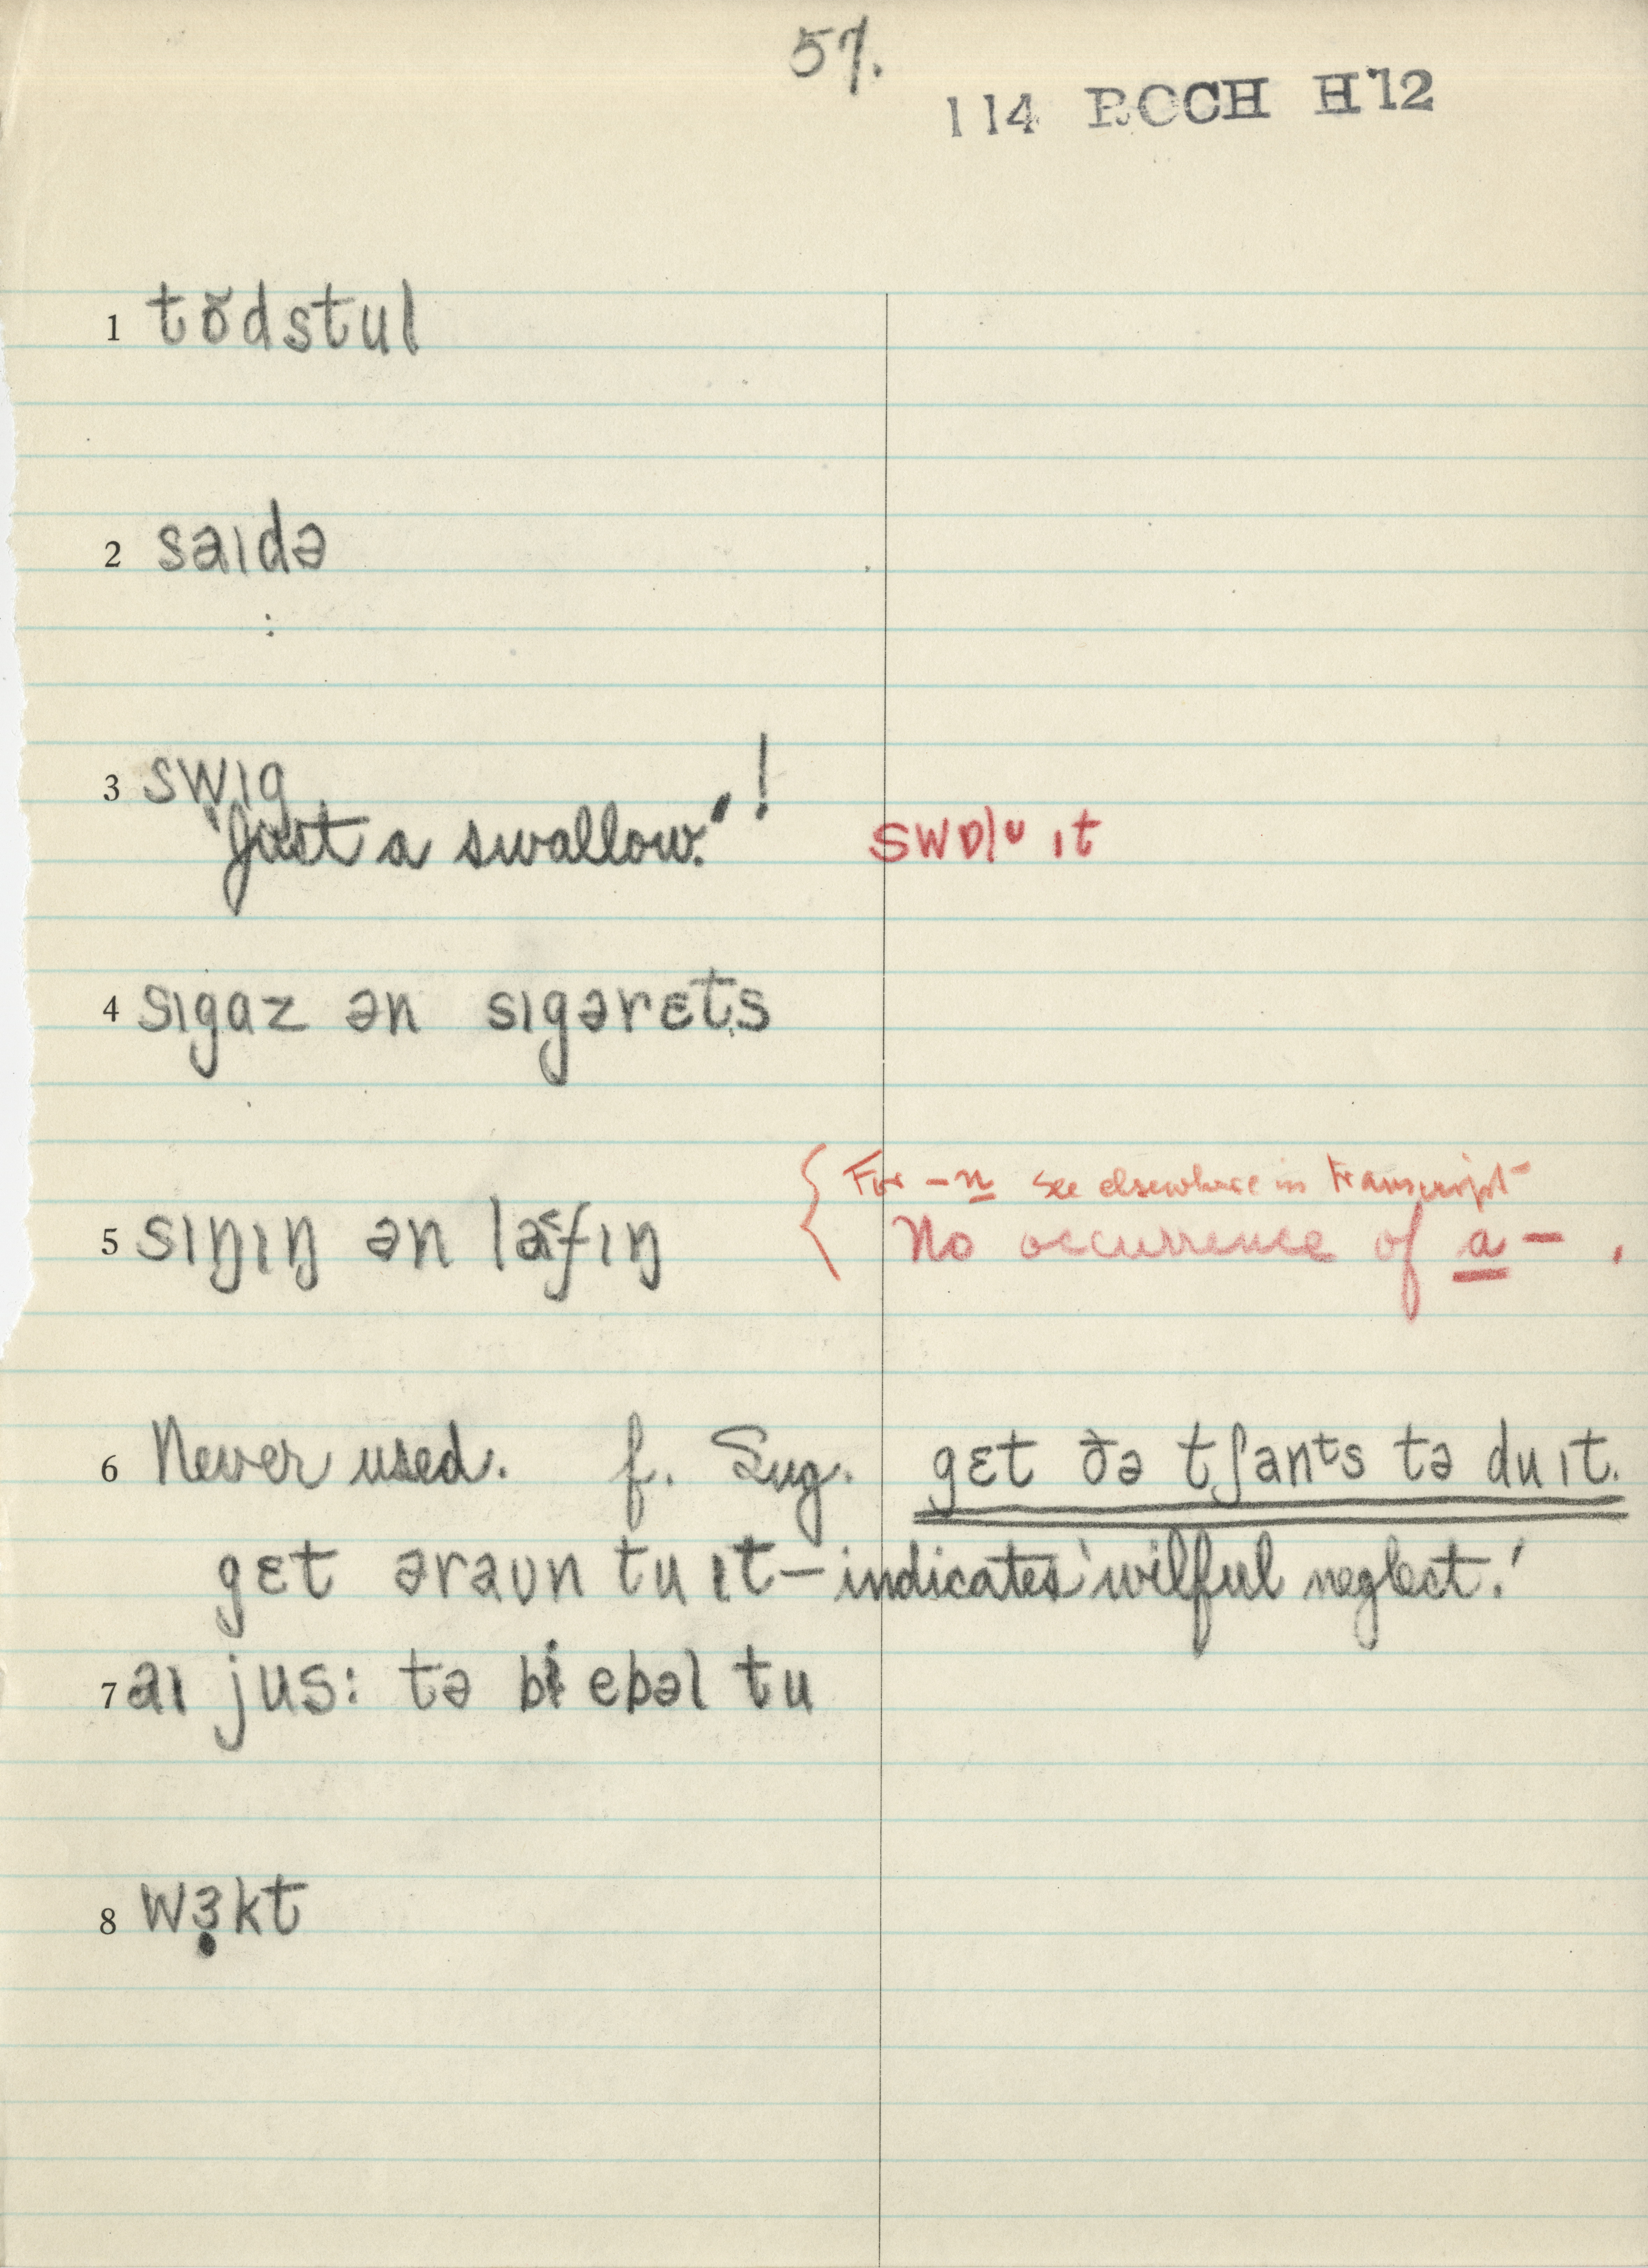 57.
114 ROCH H'12
1 tŏdstul
2 saɪdə
:
3 swɪg
"Just a swallow." ! swɒlᴜ ɪt
4 sɪgaz ən sɪgərɛts
{ For -n see elsewhere in transcript
5 sɪŋɪŋ ən lafɪŋ No occurrence of a- .
6 Never used. f. Sug. gɛt ðə tʃants tə du ɪt.
gɛt əraʊn tu ɪt – indicates 'wilful neglect.'
7 aɪ jus: tə bi ebəl tu
8 wɜ̣kt